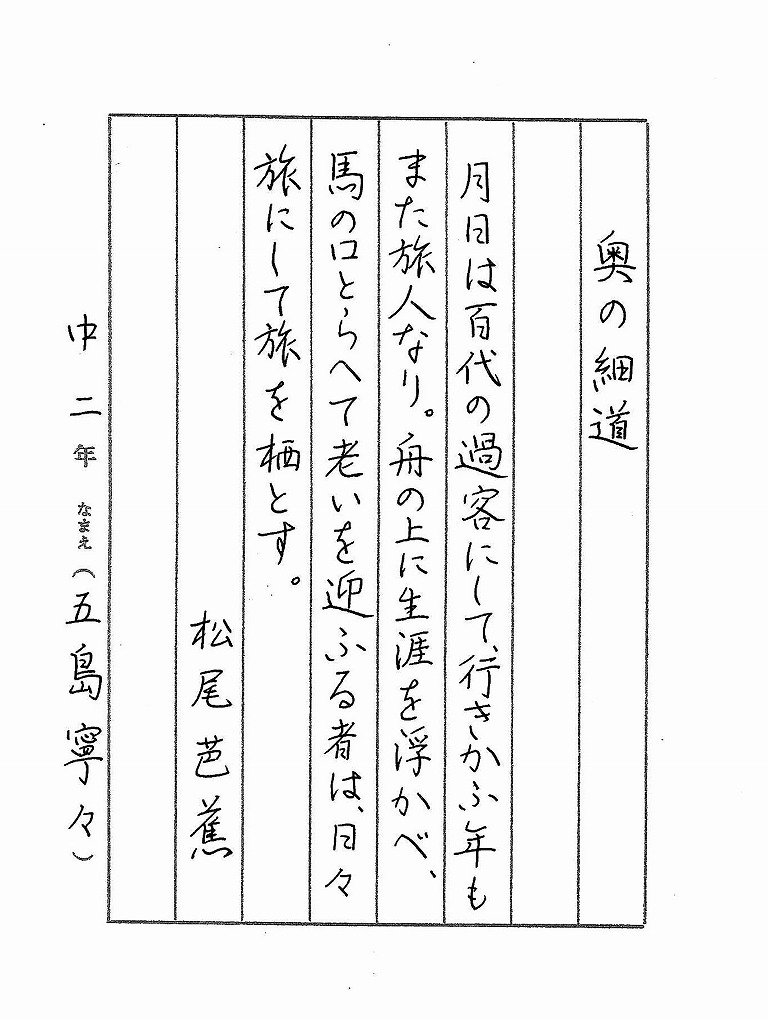 奥の細道
月日は百代の過客にして、行きかふ年も
また旅人なり。舟の上に生涯を浮かべ、
馬の口とらへて老いを迎ふる者は、日々
旅にして旅を栖とす。
松尾芭蕉
中二年 なまえ（五島寧々）